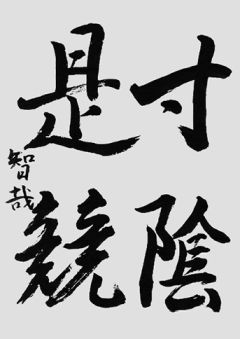 寸陰
是競
智哉